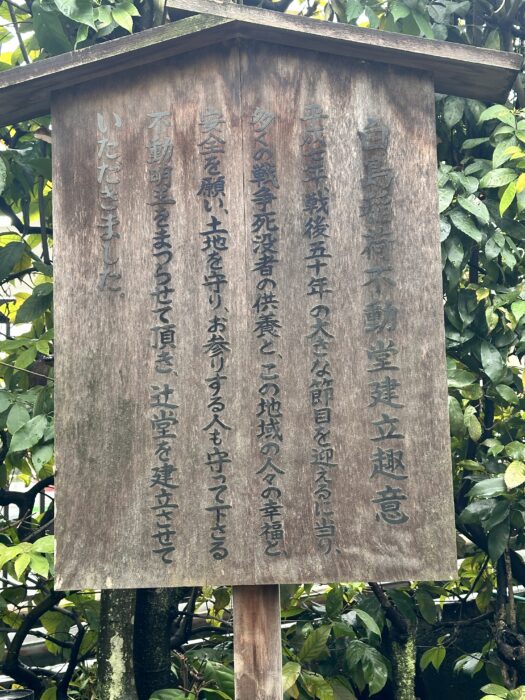 白鳥稲荷不動堂建立趣意
平成七年戦後五十年の大きな節目を迎えるに当り、
多くの戦争死没者の供養と、この地域の人々の幸福と、
安全を願い、土地を守り、お参りする人も守って下さる
不動明王をまつらせて頂き、辻堂を建立させて
いただきました。